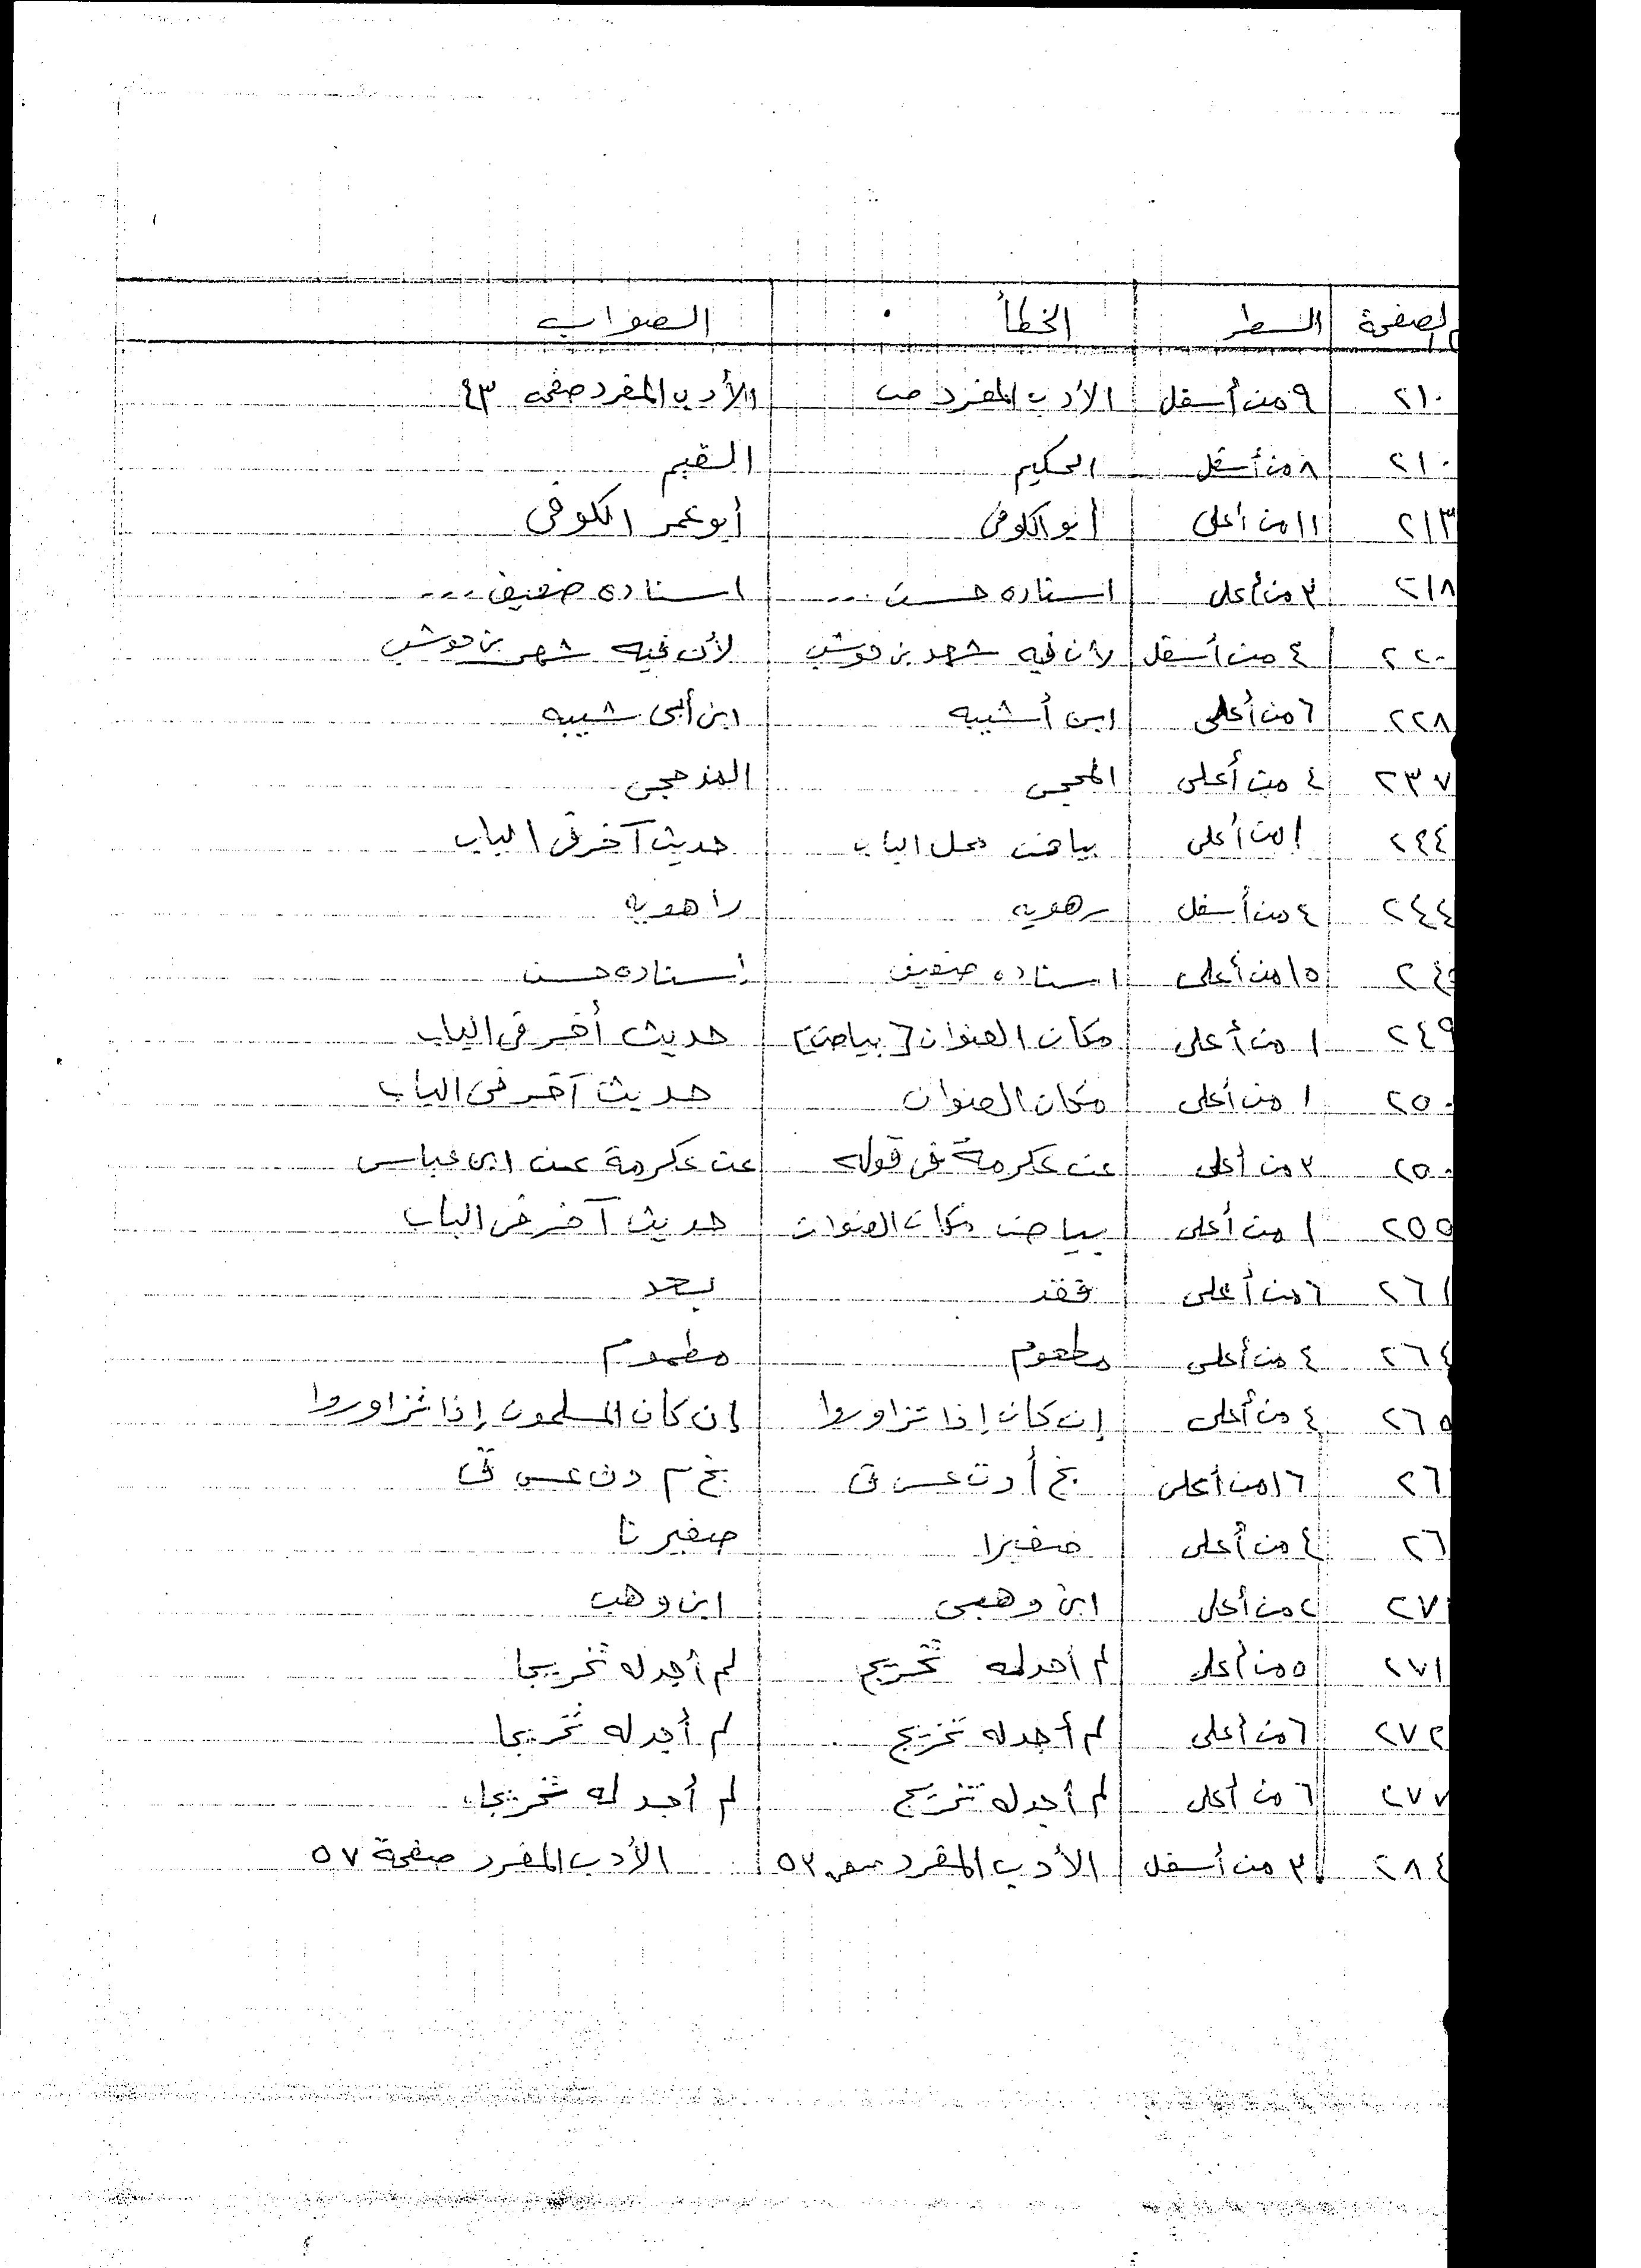 الصفحة السطر الخطأ الصواب
٢١٠ ٩ من أسفل الأدب المفرد ص الأدب المفرد صفحة ٤٣
٢١٠ ٨ من أسفل الحكيم القيم
٢١٣ ١١ من أعلى أبو الكوفى أبو عمر الكوفى
٢١٨ ٣ من أعلى اسناده حسن ... اسناده ضعيف ...
٢٢٠ ٤ من أسفل لأن فيه شهد بن حوشب لأن فيه شهر بن حوشب
٢٢٨ ٦ من أعلى ابن أشيبه ابن أبى شيبه
٢٣٧ ٤ من أعلى المحجى المذحجى
٢٤٤ ١ من أعلى بياض محل الباب حديث آخر فى الباب
٢٤٤ ٤ من أسفل رهويه راهويه
٢٤ ١٥ من أعلى اسناده ضعيف اسناده حسن
٢٤٩ ١ من أعلى مكان العنوان [بياض] حديث أخر فى الباب
٢٥٠ ١ من أعلى مكان العنوان حديث آخر فى الباب
٢٥٠ ٢ من أعلى عن عكرمة فى قوله عن عكرمة عن ابن عباس
٢٥٥ ١ من أعلى بياض مكان العنوان حديث آخر فى الباب
٢٦١ ٦ من أعلى فقد بعد
٢٦٤ ٤ من أعلى مطعوم مطموم
٢٦٥ ٤ من أعلى إن كان إذا تزاوروا إن كان المسلمون إذا تزاوروا
٢٦ ١٦ من أعلى بخ أ د ت عس ق بخ م د ت عس ق
٢٦ ٤ من أعلى صغيرا صغيرنا
٢٧١ ٢ من أعلى ابن وهبى ابن وهب
٢٧١ ٥ من أعلى لم أجد له تخريج لم أجد له تخريجا
٢٧٢ ٦ من أعلى لم أجد له تخريج لم أجد له تخريجا
٢٧٧ ٦ من أعلى لم أجد له تخريج لم أجد له تخريجا
٢٨٤ ٣ من أسفل الأدب المفرد ص ٥٢ الأدب المفرد صفحة ٥٧